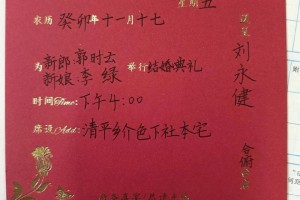 星期五
农历 癸卯年十一月十七
为 新郎 郭时云
新娘 李绿 举行结婚典礼
时间Time: 下午4:00
席设Add: 清平乡介色下社本宅
刘永健